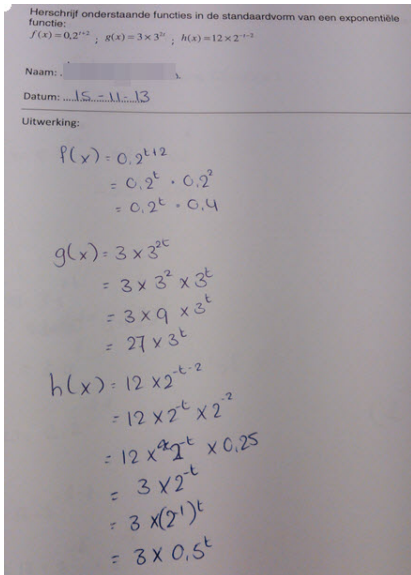 Herschrijf onderstaande functies in de standaardvorm van een exponentiële
functie:
f(x) = 0,2^{t+2} ; g(x) = 3 × 3^{2t} ; h(x) = 12 × 2^{-t-2}
Naam:
Datum: 15 - 11 - 13
Uitwerking:
f(x) = 0,2^{t+2}
= 0,2^t · 0,2^2
= 0,2^t · 0,4
g(x) = 3 × 3^{2t}
= 3 × 3^2 × 3^t
= 3 × 9 × 3^t
= 27 × 3^t
h(x) = 12 × 2^{-t-2}
= 12 × 2^{-t} × 2^{-2}
= 12 × 2^{-t} × 0,25
= 3 × 2^{-t}
= 3 × (2^{-1})^t
= 3 × 0,5^t